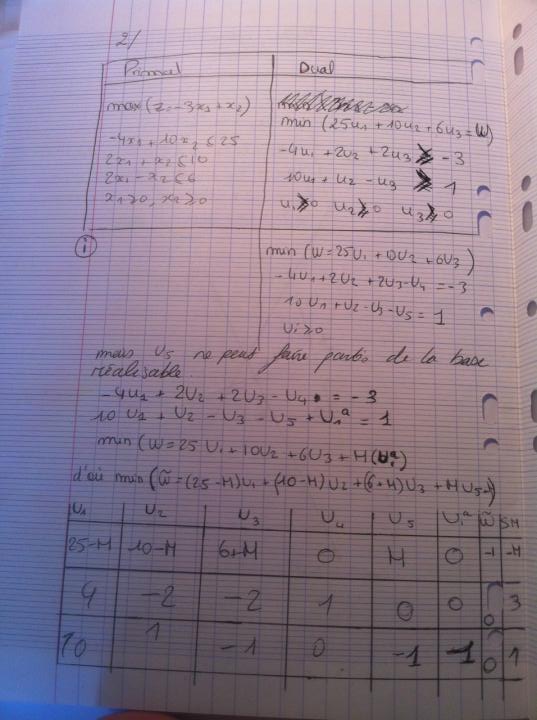 2/
Primal Dual
max(z=-3x₁+x₂)
min (25u₁+10u₂+6u₃=W)
-4x₁+10x₂≤25 -4u₁+2u₂+2u₃≥-3
2x₁+x₂≤10 10u₁+u₂-u₃≥1
2x₁-x₂≤6
x₁≥0, x₂≥0 u₁≥0 u₂≥0 u₃≥0
i
min (W=25U₁+10U₂+6U₃)
-4U₁+2U₂+2U₃-U₄=-3
10U₁+U₂-U₃-U₅=1
Ui≥0
mais U₅ ne peut faire partie de la base
réalisable.
-4U₁+2U₂+2U₃-U₄=-3
10U₁+U₂-U₃-U₅+U₁ᵃ=1
min (W=25U₁+10U₂+6U₃+M(U₁ᵃ)
d'où min(W̃=(25-M)U₁+(10-M)U₂+(6+M)U₃+MU₅
U₁ U₂ U₃ U₄ U₅ U₁ᵃ W̃ SM
25-M 10-M 6+M 0 M 0 -1 -M
4 -2 -2 1 0 0 0 3
10 1 -1 0 -1 -1 0 1